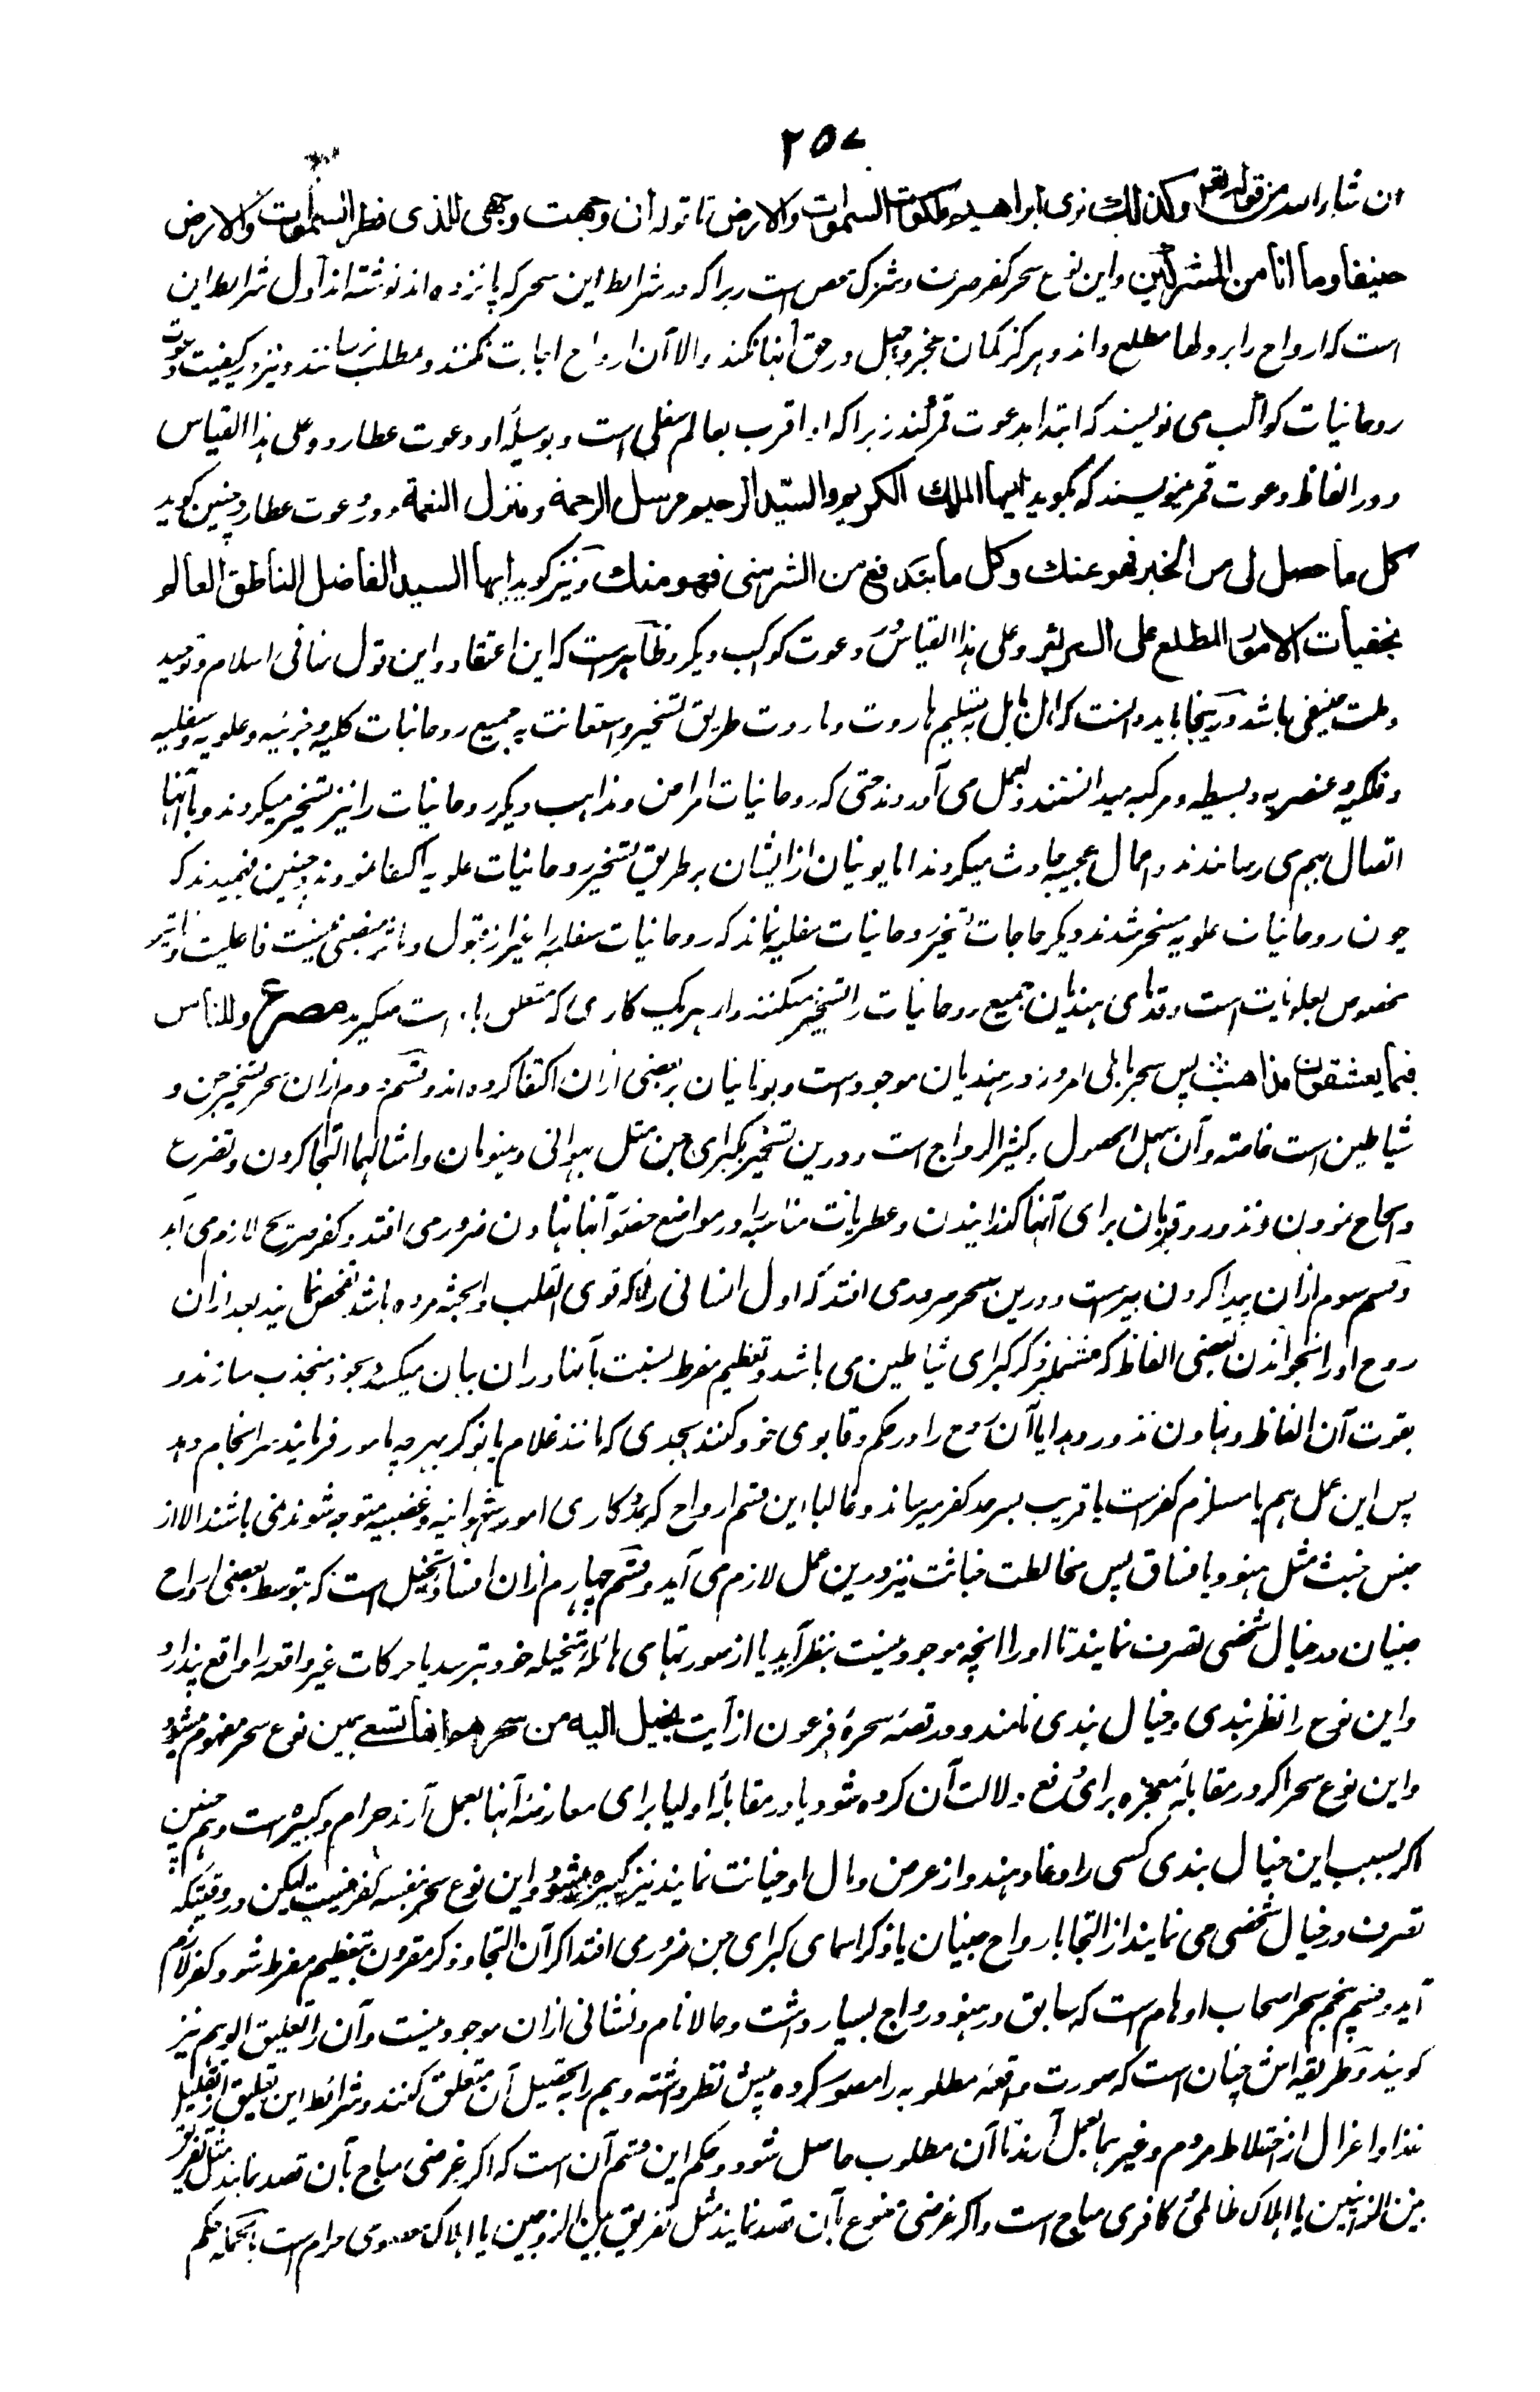 ٢٥٧
ان شاء الله من قوله تعالی وکذلک نری ابراهیم ملکوت السموات والارض تا قوله انی وجهت وجهی للذی فطر السموات والارض
حنیفا وما انا من المشرکین و این نوع سحر کفر صرف و شرک محض است زیرا که در شرائط این سحر که پانزده اند نوشته اند اول شرائط این
است که ارواح را بر دلها مطلع داند و هرگز گمان عجز و جهل در حق آنها نکند والا آن ارواح اجابت نکنند و مطلب نرسانند و نیز در کیفیت دعوت
روحانیات کواکب می نویسند که ابتدا بدعوت قمر کند زیرا که او اقرب بعالم سفلی است و بوسیله او دعوت عطارد و علی هذا القیاس
و در الفاظ دعوت قمر مینویسند که بگوید ایها الملک الکریم والسید الرحیم مرسل الرحمة و منزل النعمة و در دعوت عطارد چنین گوید
کل ما حصل لی من الخیر فهو عنک وکل ما یندفع من الشر منی فهو منک و نیز گوید ایها السید الفاضل الناطق العالم
بخفیات الامور المطلع علی السرائر و علی هذا القیاس در دعوت کواکب دیگر و ظاهر است که این اعتقاد و این قول منافی اسلام و توحید
و ملت حنیفی باشد و در اینجا باید دانست که اهل بابل به تعلیم هاروت و ماروت طریق تسخیر و استعانت به جمیع روحانیات کلیه و جزئیه و علویه و سفلیه
و فلکیه و عنصریه و بسیطه و مرکبه میدانستند و بعمل می آوردند حتی که روحانیات امراض و مذاهب و دیگر روحانیات را نیز تسخیر میکردند و بآنها
اتصال بهم می رسانیدند و اعمال عجیبه حادث میکردند اما یونیان از ایشان بر طریق تسخیر روحانیات علویه اکتفا نمودند و چنین فهمیدند که
چون روحانیات علویه مسخر شدند دیگر حاجات تسخیر روحانیات سفلیه نماند که روحانیات سفلیه را غیر از قبول و تاثر منصبی نیست فاعلیت و تاثیر
مخصوص بعلویات است و قدمای هندیان جمیع روحانیات را تسخیر میکنند و از هر یک کاری که متعلق باو است میگیرند مصرع وللناس
فیما یعشقون مذاهب پس سحر بابلی امروز در هندیان موجود است و یونانیان بر بعضی ازان اکتفا کرده اند و قسم دوم ازان سحر تسخیر جن و
شیاطین است خاصة و آن سهل الحصول و کثیر الرواج است و درین تسخیر بکبرای جن مثل بهوانی و هنومان و امثالهما التجا کردن و تضرع
و الحاح نمودن و نذور و قربان برای آنها گذرانیدن و عطریات مناسبه را در مواضع حضور آنها نهادن ضرور می افتد و کفر صریح لازم می آید
و قسم سوم ازان پیدا کردن بیر است و درین سحر ضرور می افتد که اول انسانی را که قوی القلب و الجثه مرده باشد تفحص نمایند بعد ازان
روح او را بخواندن بعضی الفاظ که متضمن ذکر کبرای شیاطین می باشد و تعظیم مفرط نسبت بآنها دران بیان میکنند بخود منجذب سازند و
بقوت آن الفاظ و نهادن نذور و هدایا آن روح را در حکم و قابوی خود کنند بحدی که مانند غلام یا نوکر بهرچه مامور فرمایند سرانجام دهد
پس این عمل هم یا مستلزم کفر است یا قریب بسرحد کفر میرساند و غالبا این قسم ارواح که بمددگاری امور شهوانیه و غضبیه متوجه شوند نمی باشند الا از
جنس خبیث مثل هنود یا فساق پس مخالطت خبائث نیز درین عمل لازم می آید و قسم چهارم ازان افساد تخیل است که بتوسط بعضی ارواح
جنیان در خیال شخصی تصرف نمایند تا او را آنچه موجود نیست بنظر آید یا از صورتهای هائله متخیله خود بترسد یا حرکات غیر واقعه را واقع پندارد
و این نوع را نظربندی و خیال بندی نامند و در قصه سحره فرعون از آیت یخیل الیه من سحرهم انها تسعی همین نوع سحر مفهوم میشود
و این نوع سحر اگر در مقابله معجزه برای دفع دلالت آن کرده شود یا در مقابله اولیا برای معارضه آنها بعمل آرند حرام و کبیره است و هم چنین
اگر بسبب این خیال بندی کسی را دغا دهند و از عرض و مال او خیانت نمایند نیز کبیره میشود و این نوع سحر بنفسه کفر نیست لیکن در وقتیکه
تصرف در خیال شخصی می نمایند از التجا بارواح جنیان یا ذکر اسمای کبرای جن ضرور می افتد اگر آن التجا و ذکر مقرون بتعظیم مفرط شود کفر لازم
آید و قسم پنجم سحر اصحاب اوهام است که سابق در هنود رواج بسیار داشت و حالا نام و نشانی ازان موجود نیست و آن را تعلیق الوهم نیز
گویند و طریقه اش چنان است که صورت واقعه مطلوبه را مصور کرده پیش نظر داشته وهم را به تحصیل آن متعلق کنند و شرائط این تعلیق از تقلیل
غذا و اعتزال از اختلاط مردم و غیرهما بعمل آرند تا آن مطلوب حاصل شود و حکم این قسم آن است که اگر غرضی مباح بآن قصد نمایند مثل تفریق
بین الزانیین یا اهلاک ظالمی کافری مباح است و اگر غرضی ممنوع بآن قصد نمایند مثل تفریق بین الزوجین یا اهلاک معصومی حرام است بالجمله حکم